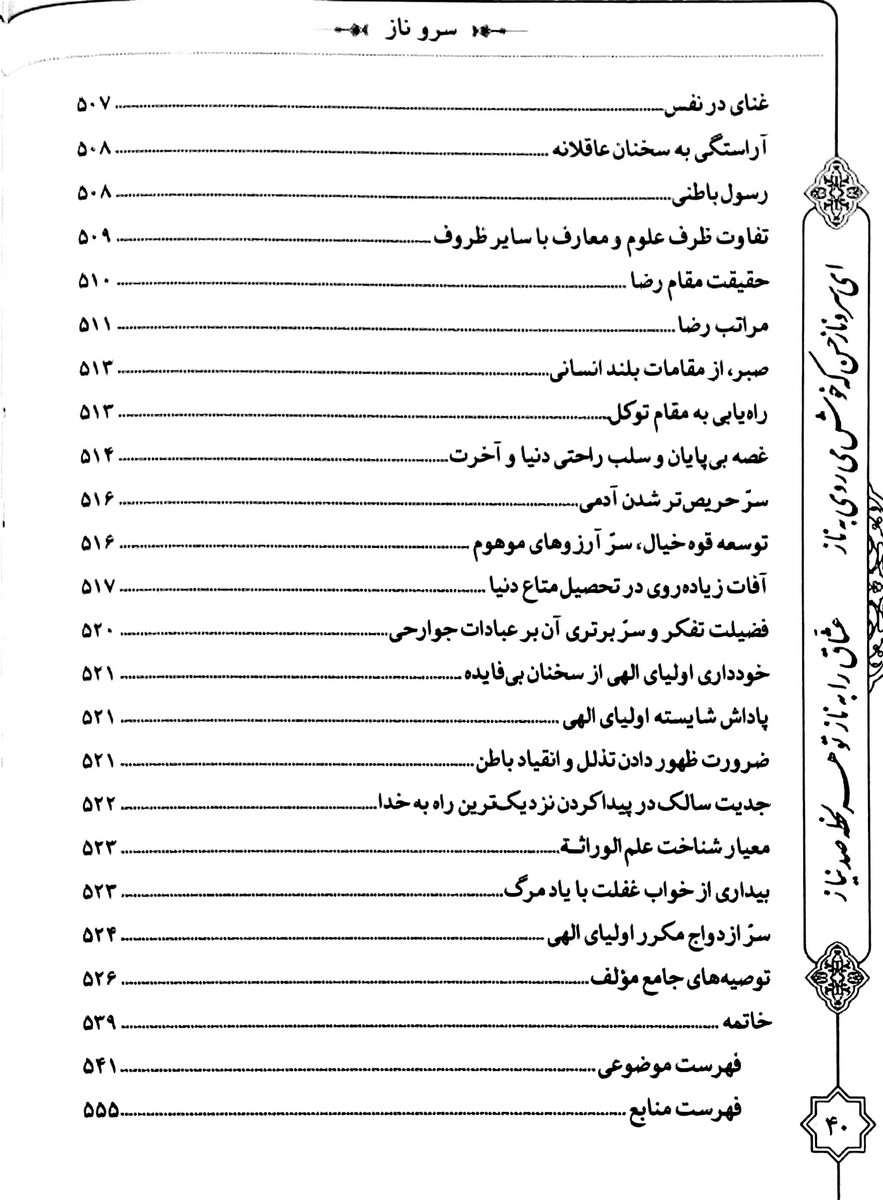 سرو ناز
غنای در نفس ..... ۵۰۷
آراستگی به سخنان عاقلانه ..... ۵۰۸
رسول باطنی ..... ۵۰۸
تفاوت ظرف علوم و معارف با سایر ظروف ..... ۵۰۹
حقیقت مقام رضا ..... ۵۱۰
مراتب رضا ..... ۵۱۱
صبر، از مقامات بلند انسانی ..... ۵۱۳
راه‌یابی به مقام توکل ..... ۵۱۳
غصه بی‌پایان و سلب راحتی دنیا و آخرت ..... ۵۱۴
سرّ حریص‌تر شدن آدمی ..... ۵۱۶
توسعه قوه خیال، سرّ آرزوهای موهوم ..... ۵۱۶
آفات زیاده‌روی در تحصیل متاع دنیا ..... ۵۱۷
فضیلت تفکر و سرّ برتری آن بر عبادات جوارحی ..... ۵۲۰
خودداری اولیای الهی از سخنان بی‌فایده ..... ۵۲۱
پاداش شایسته اولیای الهی ..... ۵۲۱
ضرورت ظهور دادن تذلل و انقیاد باطن ..... ۵۲۱
جدیت سالک در پیدا کردن نزدیک‌ترین راه به خدا ..... ۵۲۲
معیار شناخت علم الوراثة ..... ۵۲۳
بیداری از خواب غفلت با یاد مرگ ..... ۵۲۳
سرّ ازدواج مکرر اولیای الهی ..... ۵۲۴
توصیه‌های جامع مؤلف ..... ۵۲۶
خاتمه ..... ۵۳۹
فهرست موضوعی ..... ۵۴۱
فهرست منابع ..... ۵۵۵
ای سرو ناز حسن که خوش می روی به ناز
عشاق را به ناز تو هر لحظه صد نیاز
۴۰